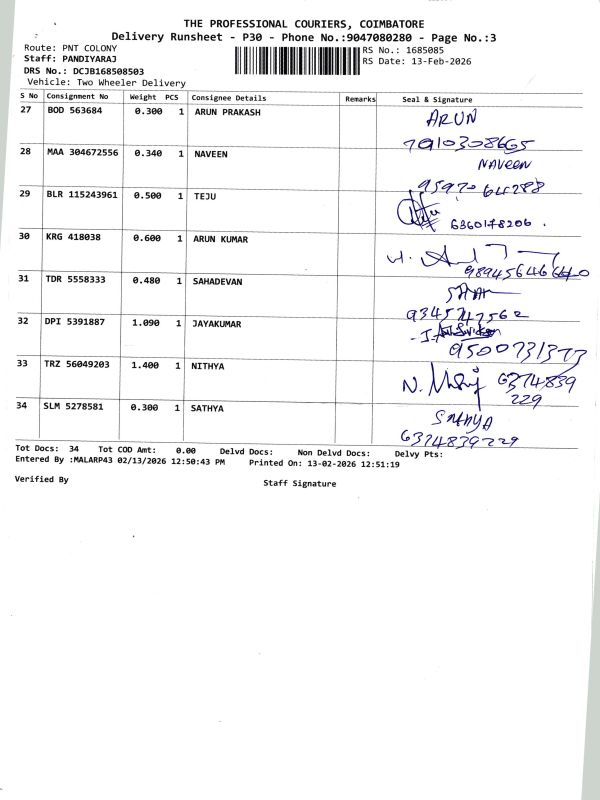 THE PROFESSIONAL COURIERS, COIMBATORE
Delivery Runsheet - P30 - Phone No.:9047080280 - Page No.:3
Route: PNT COLONY
RS No.: 1685085
Staff: PANDIYARAJ
RS Date: 13-Feb-2026
DRS No.: DCJB168508503
Vehicle: Two Wheeler Delivery
S No Consignment No Weight PCS Consignee Details Remarks Seal & Signature
27 BOD 563684 0.300 1 ARUN PRAKASH ARUN
7910308665
28 MAA 304672556 0.340 1 NAVEEN NAVEEN
95970 64288
29 BLR 115243961 0.500 1 TEJU
6360178206 .
30 KRG 418038 0.600 1 ARUN KUMAR
31 TDR 5558333 0.480 1 SAHADEVAN
9345747562
32 DPI 5391887 1.090 1 JAYAKUMAR
9500731373
33 TRZ 56049203 1.400 1 NITHYA
6374839
229
34 SLM 5278581 0.300 1 SATHYA SATHYA
6374839229
Tot Docs: 34 Tot COD Amt: 0.00 Delvd Docs: Non Delvd Docs: Delvy Pts:
Entered By :MALARP43 02/13/2026 12:50:43 PM Printed On: 13-02-2026 12:51:19
Verified By
Staff Signature